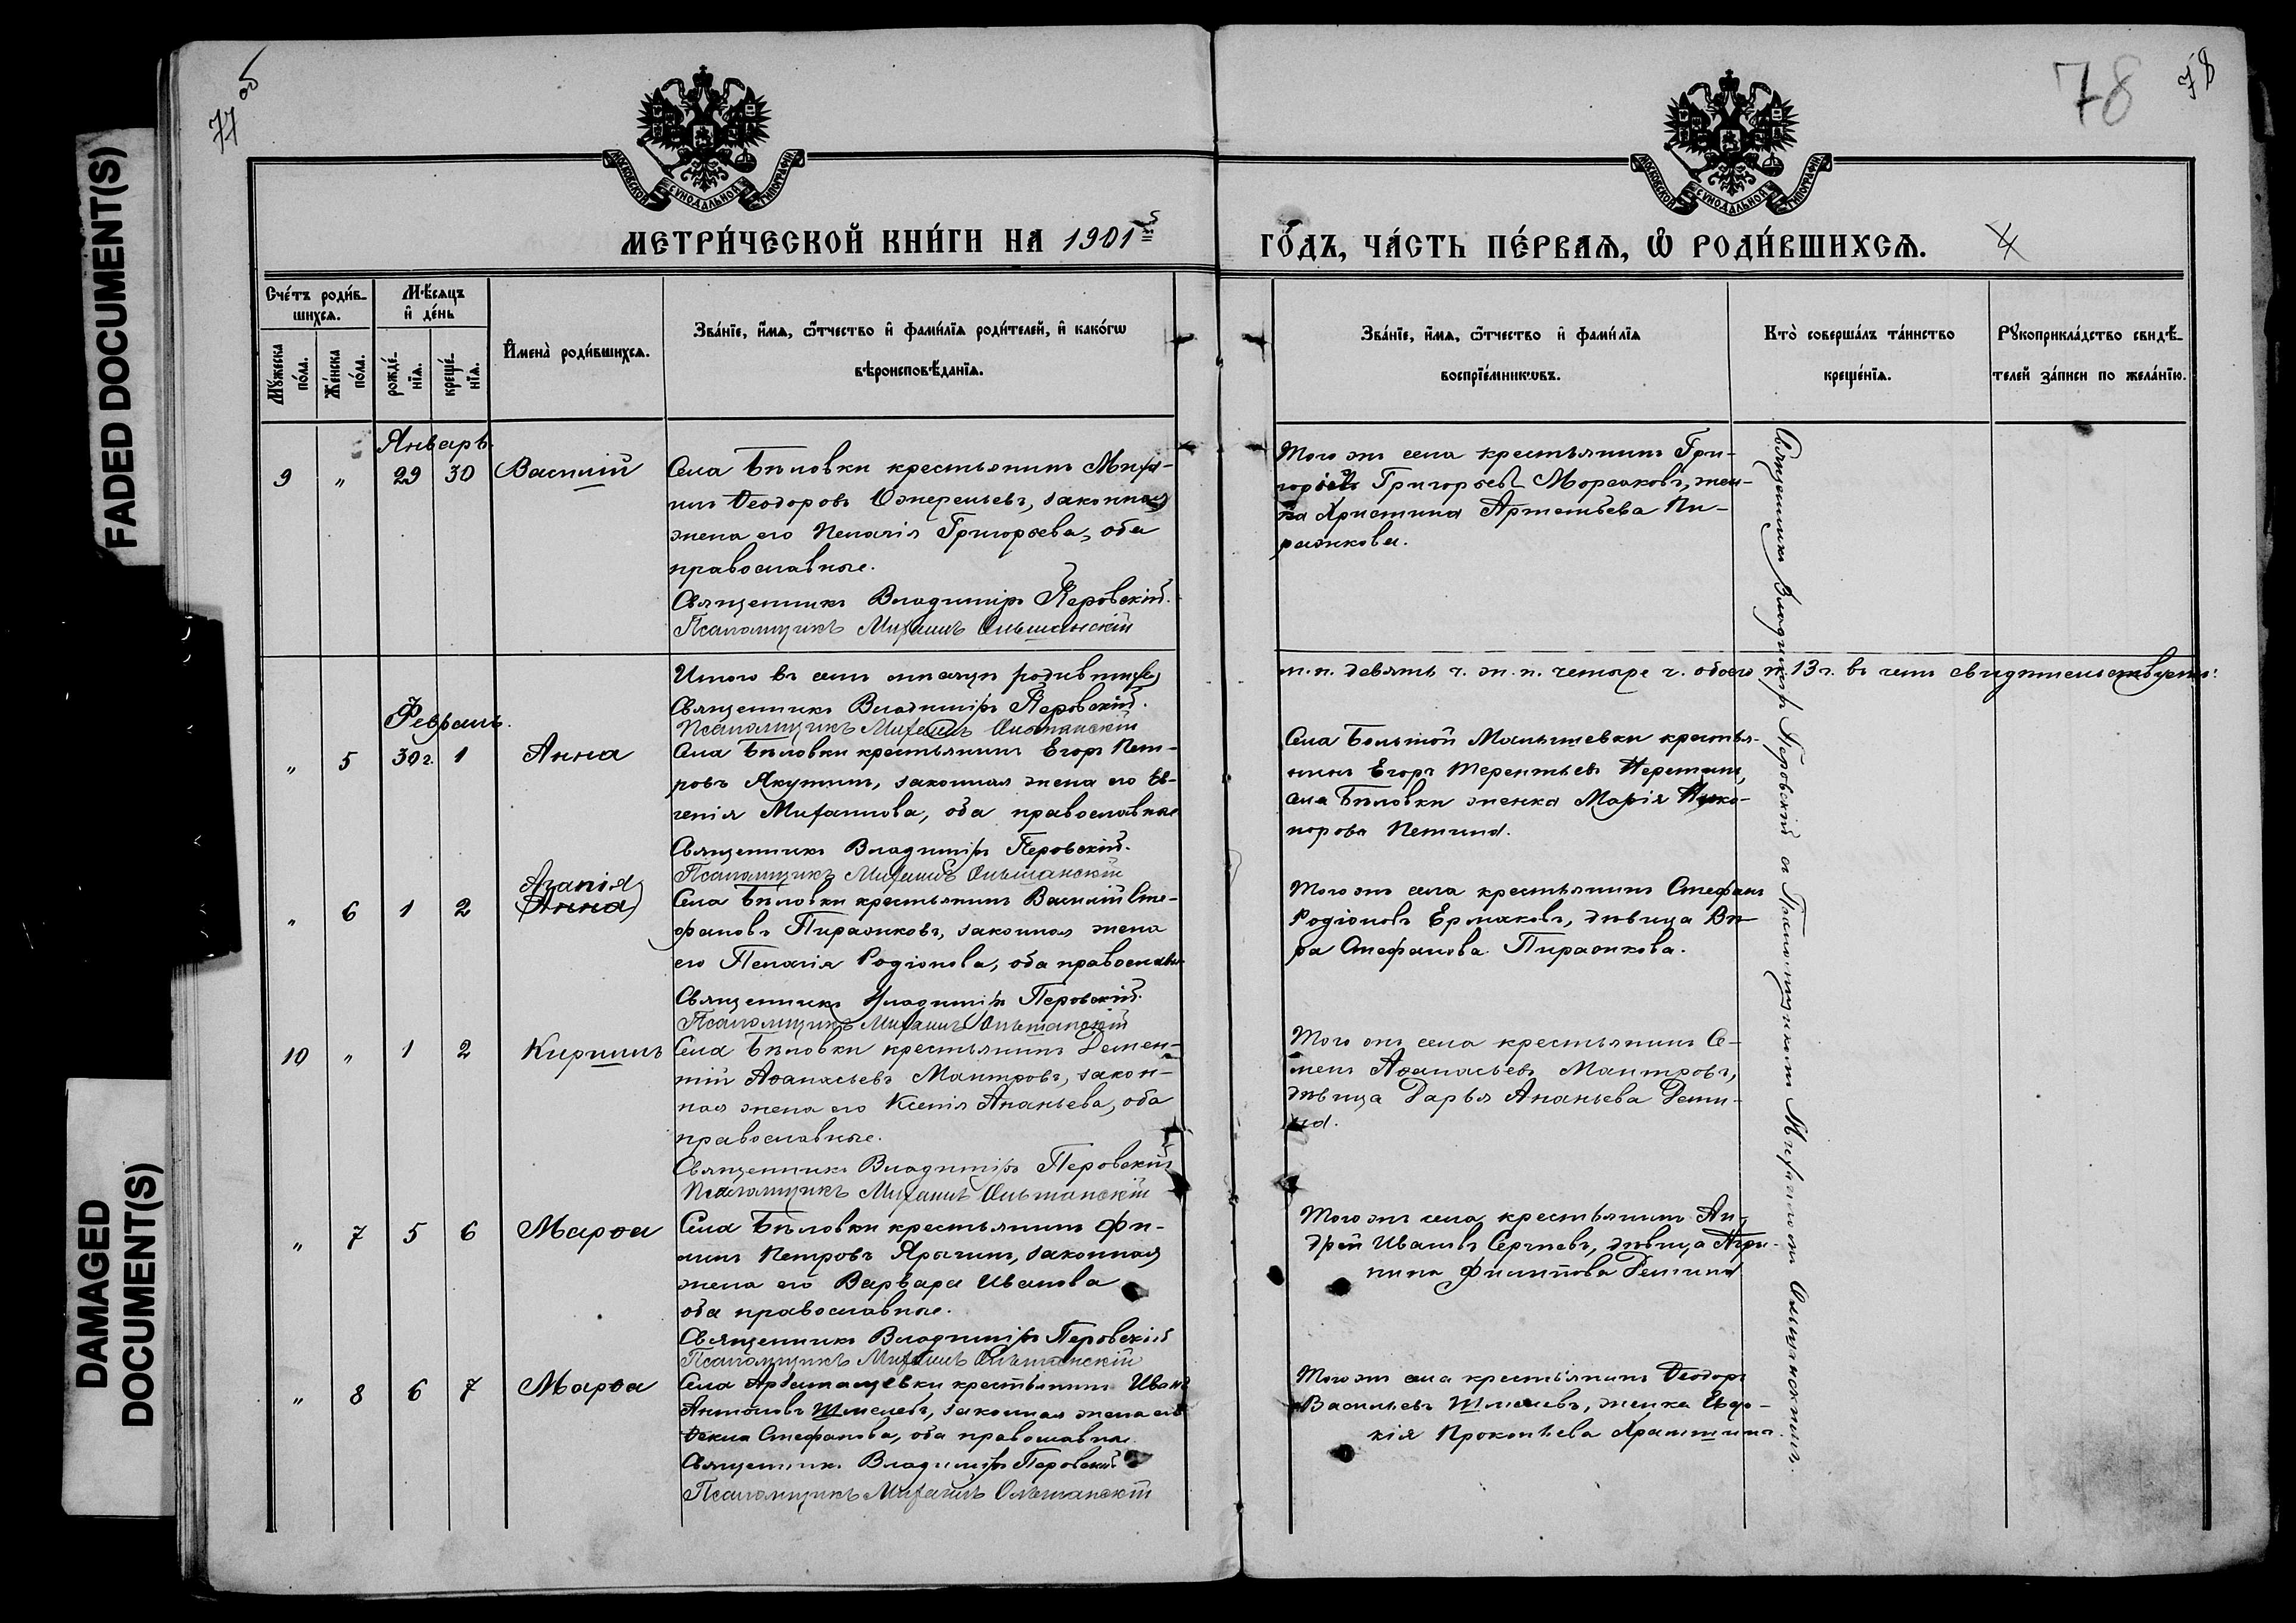 FADED DOCUMENT(S)
DAMAGED
DOCUMENT(S)
77 об
78
78
МОСКОВСКОЙ СѴНОДАЛЬНОЙ ТИПОГРАФІИ
МОСКОВСКОЙ СѴНОДАЛЬНОЙ ТИПОГРАФІИ
МЕТРИ́ЧЕСКОЙ КНИ́ГИ НА 1901й
ГО́ДЪ, ЧА́СТЬ ПЕ́РВАѦ, Ѡ РОДИ́ВШИХСѦ. 4
Сче́тъ роди́в-
шихсѧ.
Мꙋ́жеска по́ла.
Же́нска по́ла.
Мѣ́сяцъ
и҆ де́нь
рожде́-
нїѧ.
креще́-
нїѧ.
И҆мена̀ роди́вшихсѧ.
Зва́нїе, и҆́мѧ, ѻ҆́тчество и҆ фами́лїѧ роди́телей, и҆ како́гѡ
вѣроисповѣ́данїѧ.
Зва́нїе, и҆́мѧ, ѻ҆́тчество и҆ фами́лїѧ
воспрїе́мникѡвъ.
Кто̀ соверша́лъ та́инство
креще́нїѧ.
Рꙋкоприкла́дство свидѣ́-
телей за́писи по жела́нїю.
Январь.
9 " 29 30 Василій
Села Бѣловки крестьянинъ Миха-
илъ Ѳеодоровъ Ожерельевъ, законная
жена его Пелагія Григорьева, оба
православные.
Священникъ Владиміръ Перовскій.
Псаломщикъ Михаилъ Ольшанскій
Того же села крестьянинъ Гри-
горій Григорьевъ Морсаковъ, жен-
ка Христина Артемьева Пи-
рожкова.
Итого въ семъ мѣсяцѣ родившихся
м. п. девять ч. ж. п. четыре ч. обоего п. 13 ч. въ чемъ свидѣтельствуемъ:
Священникъ Владиміръ Перовскій.
Псаломщикъ Михаилъ Ольшанскій
Февраль.
" 5 30 г. 1 Анна
Села Бѣловки крестьянинъ Егоръ Пет-
ровъ Якутинъ, законная жена его Ев-
генія Михаилова, оба православные
Священникъ Владиміръ Перовскій.
Псаломщикъ Михаилъ Ольшанскій
Села Большой Малышевки крестья-
нинъ Егоръ Терентьевъ
села Бѣловки женка Марія Нико-
норова Петина.
" 6 1 2 Агапія
Анна
Села Бѣловки крестьянинъ Василій Сте-
фановъ Пирожковъ, законная жена
его Пелагія Родіонова, оба православн
Священникъ Владиміръ Перовскій.
Псаломщикъ Михаилъ Ольшанскій
Того же села крестьянинъ Стефанъ
Родіоновъ Ермаковъ, дѣвица Вѣ-
ра Стефанова Пирожкова.
10 " 1 2 Кириллъ
Села Бѣловки крестьянинъ Демен-
тій Аѳанасьевъ Мантровъ, закон-
ная жена его Ксенія Ананьева, оба
православные.
Священникъ Владиміръ Перовскій
Псаломщикъ Михаилъ Ольшанскій
Того же села крестьянинъ Се-
менъ Аѳанасьевъ Мантровъ,
дѣвица Дарья Ананьева Деми-
на.
" 7 5 6 Марѳа
Села Бѣловки крестьянинъ Фи-
липъ Петровъ Ярыгинъ, законная
жена его Варвара Иванова
оба православные.
Священникъ Владиміръ Перовскій
Псаломщикъ Михаилъ Ольшанскій
Того же села крестьянинъ Ан-
дрей Ивановъ Сергѣевъ, дѣвица Агри-
пина Филиппова Демина
" 8 6 7 Марѳа
Села крестьянинъ Иванъ
Антоновъ Шмелевъ, законная жена его
Ѳекла Стефанова, оба православны
Священникъ Владиміръ Перовскій
Псаломщикъ Михаилъ Ольшанскій
Того же села крестьянинъ Ѳеодоръ
Васильевъ Шмелевъ, женка Евдо-
кія Прокопьева
Священникъ Владиміръ Перовскій съ Псаломщикомъ Михаиломъ Ольшанскимъ.